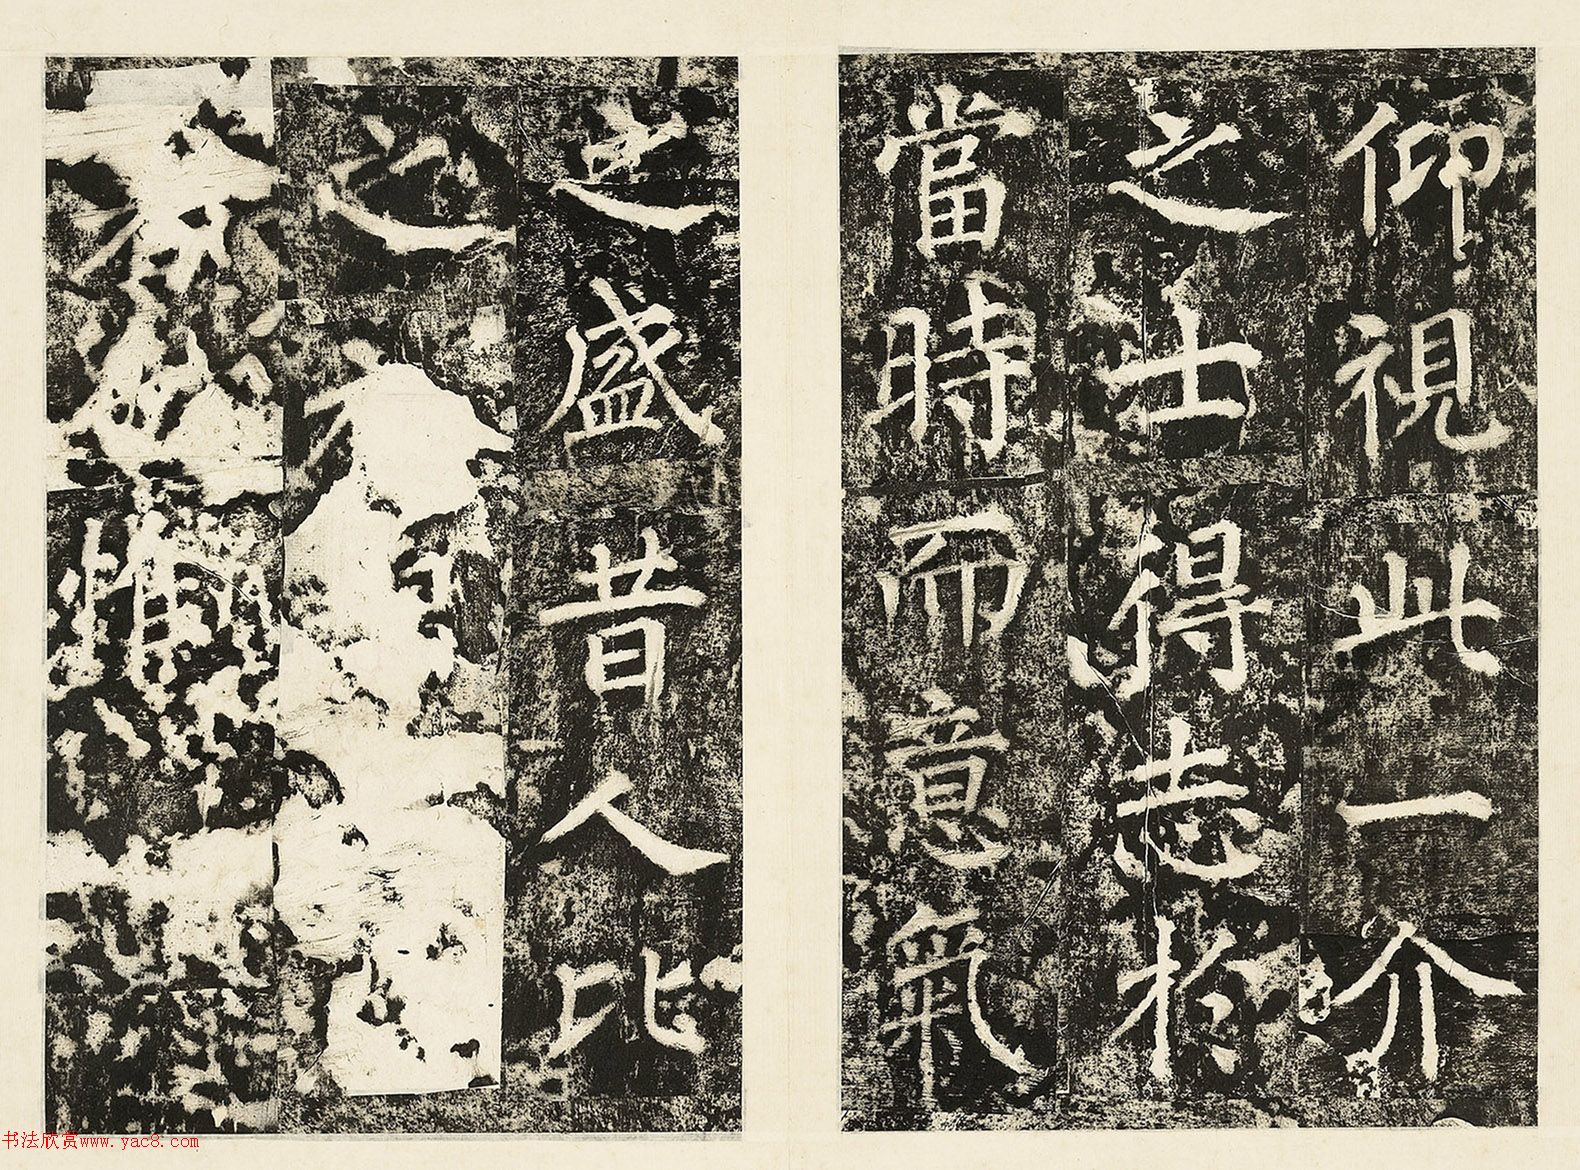 仰視此一介
之士得志於
當時而意氣
之盛昔人比
之
惟
书法欣赏www.yac8.com